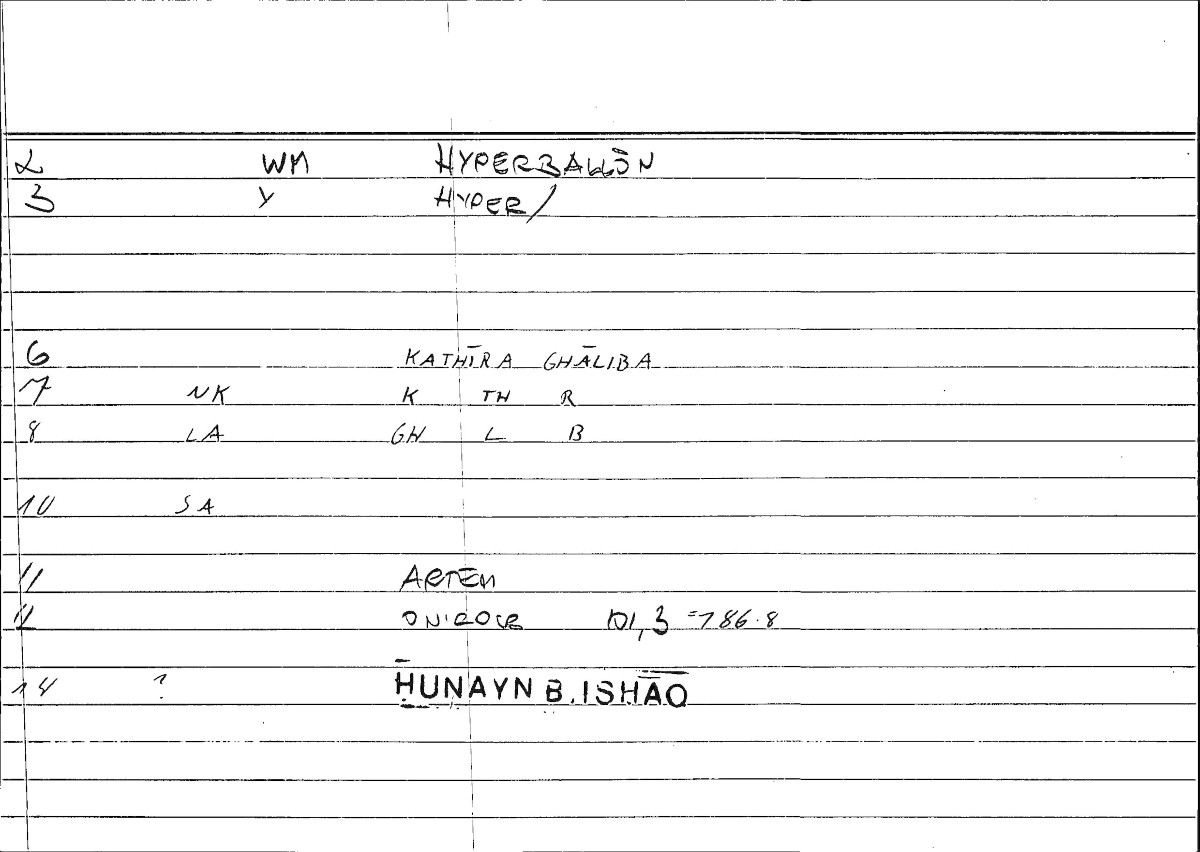 2 WM HYPERBALLŌN
3 Y HYPER/
6 KATHĪRA GHĀLIBA
7 NK K TH R
8 LA GH L B
10 SA
11 ARTEM
12 ONIROCR 101,3 =186.8
14 ? ḤUNAYN B. ISḤĀQ